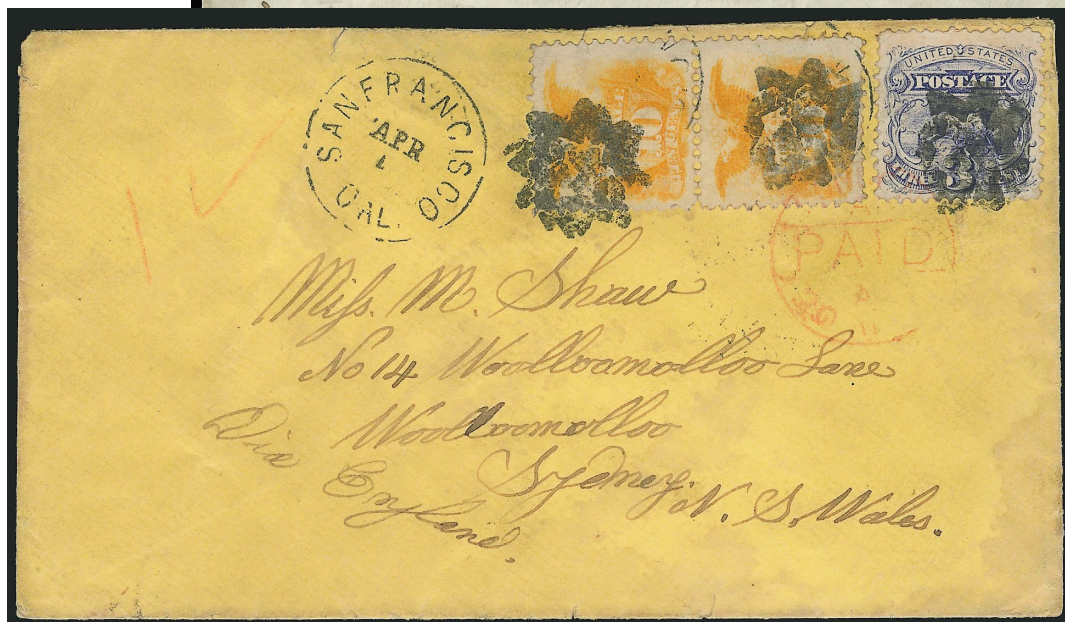 SAN FRANCISCO
APR
CAL.
10
UNITED STATES
POSTAGE
PAID
Miss. M. Shaw
No 14 Woolloomolloo Lane
Woolloomolloo
Sydney. N. S. Wales.
Via
England.